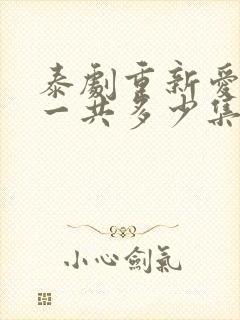 泰劇重新愛
一共多少集
小心劍氣